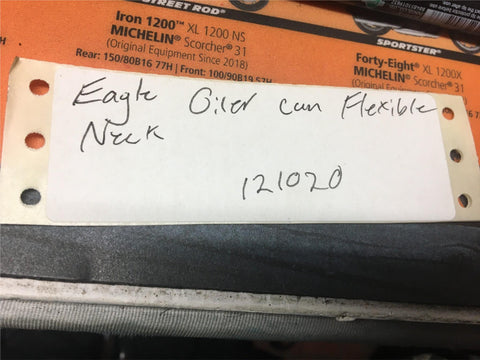 STREET ROD®
Iron 1200™ XL 1200 NS
MICHELIN® Scorcher® 31
(Original Equipment Since 2018)
Rear: 150/80B16 77H | Front: 100/90B19 57H
SPORTSTER®
Forty-Eight® XL 1200X
MICHELIN® Scorcher® 31
Eagle Oiler can Flexible
Neck
121020